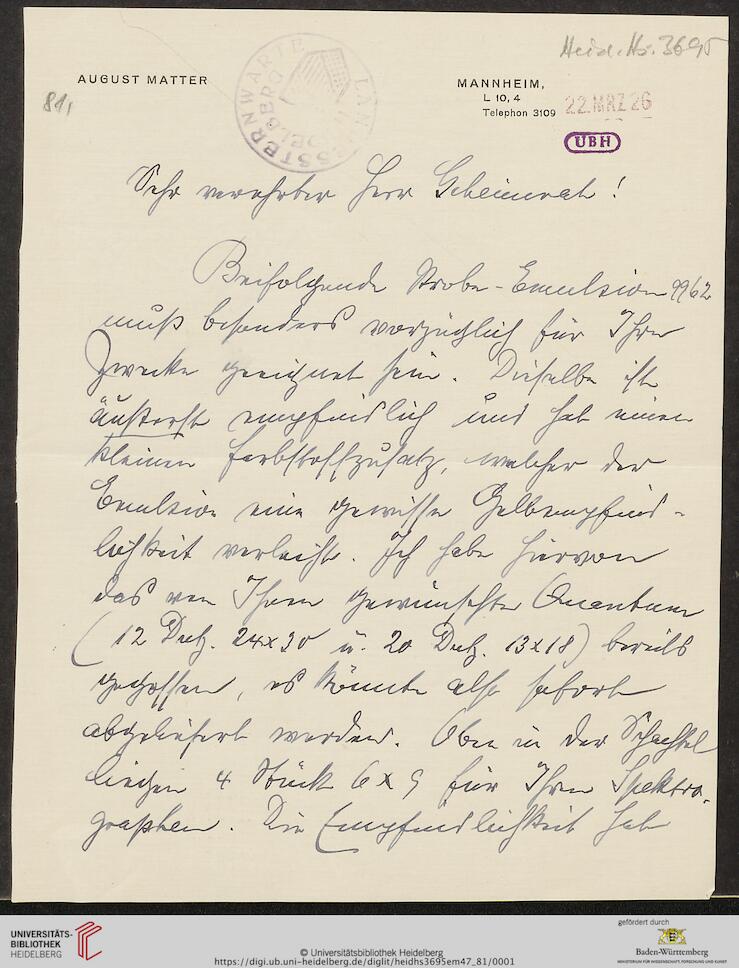 Heid. Hs. 3695
AUGUST MATTER
MANNHEIM,
L 10, 4
Telephon 3109
22. MRZ 26
81,
LANDESSTERNWARTE
HEIDELBERG
UBH
Sehr verehrter Herr Geheimrat!
Beifolgende Probe-Emulsion 9962
muß besonders vorzüglich für Ihre
Zwecke geeignet sein. Dieselbe ist
äußerst empfindlich und hat einen
kleinen Farbstoffzusatz, welcher der
Emulsion eine gewisse Gelbempfind-
lichkeit verleiht. Ich habe hiervon
das von Ihnen gewünschte Quantum
(12 Dutz. 24x30 u. 20 Dutz. 13x18) bereits
gegossen, es könnte also sofort
abgeliefert werden. Oben in der Schachtel
liegen 4 Stück 6x9 für Ihren Spektro-
graphen. Die Empfindlichkeit habe
UNIVERSITÄTS-
BIBLIOTHEK
HEIDELBERG
© Universitätsbibliothek Heidelberg
https://digi.ub.uni-heidelberg.de/diglit/heidhs3695em47_81/0001
gefördert durch
Baden-Württemberg
MINISTERIUM FÜR WISSENSCHAFT, FORSCHUNG UND KUNST